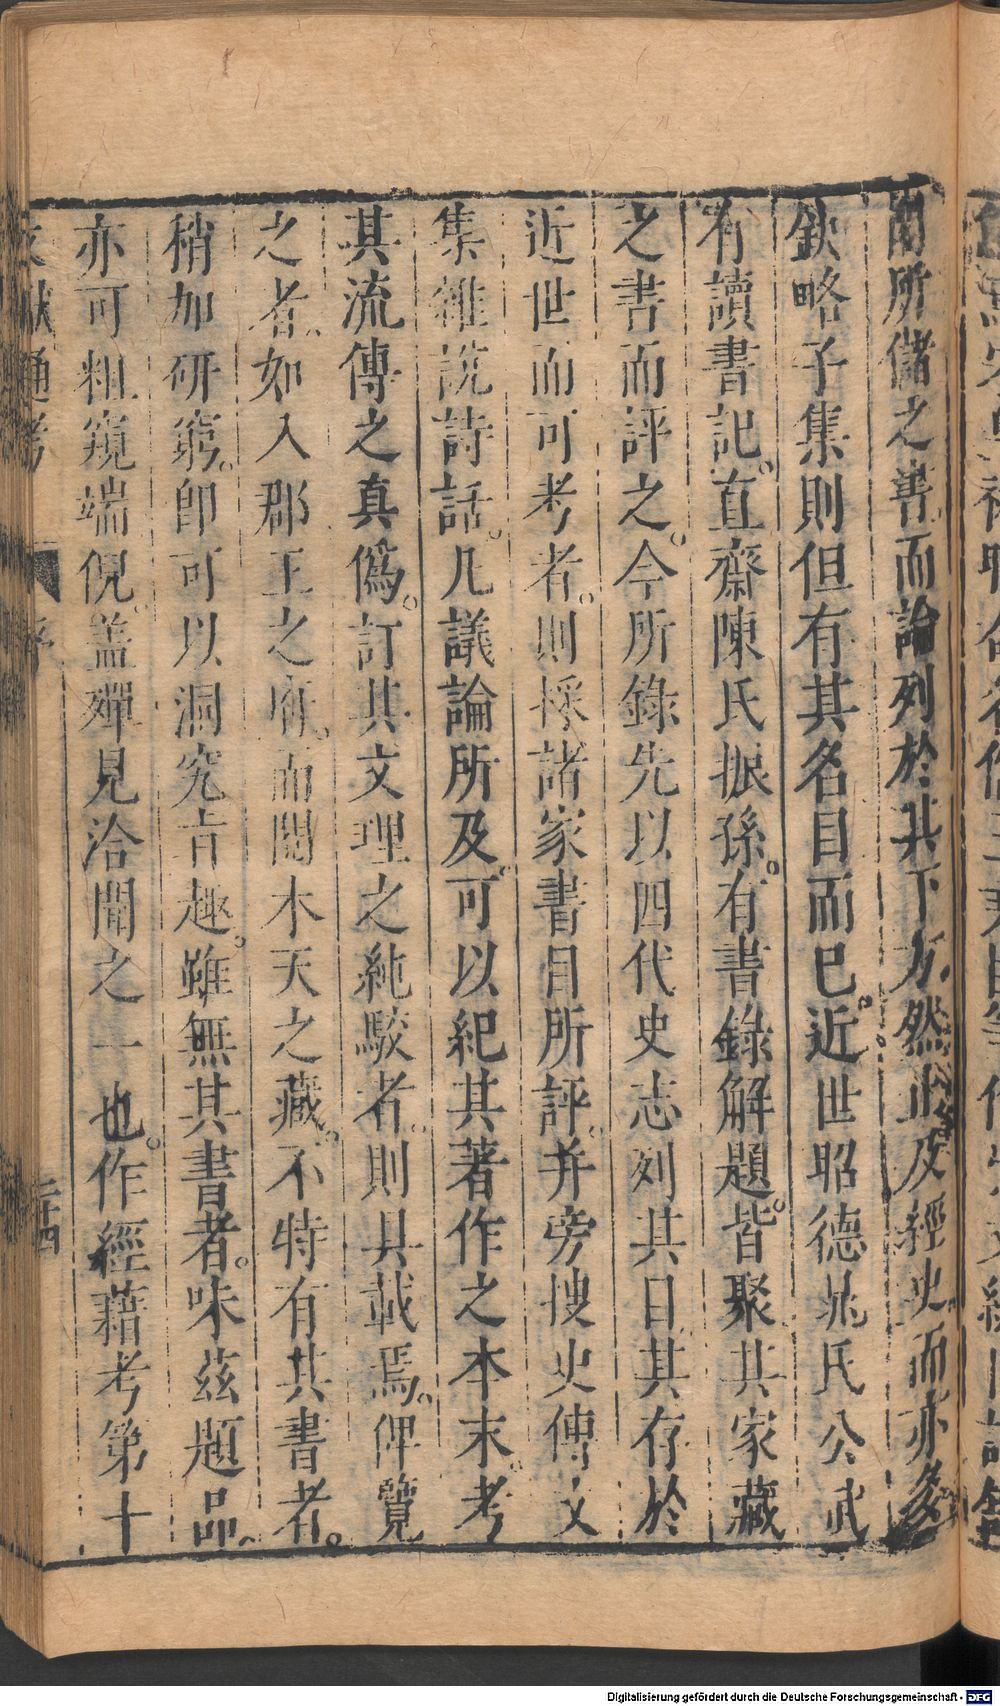 閣所儲之書而論列於其下方然止及經史而亦多
欽略子集則但有其名目而已近世昭德晁氏公武
有讀書記直齋陳氏振孫有書錄解題皆聚其家藏
之書而評之今所錄先以四代史志列其目其存於
近世而可考者則採諸家書目所評并旁搜史傳文
集雜說詩話凡議論所及可以紀其著作之本末考
其流傳之真僞訂其文理之純駮者則具載焉俾覽
之者如入郡王之府而閱木天之藏不特有其書者
稍加研窮即可以洞究旨趣雖無其書者味茲題品
亦可粗窺端倪蓋殫見洽聞之一也作經藉考第十
文獻通考 序 二十四
Digitalisierung gefördert durch die Deutsche Forschungsgemeinschaft - DFG